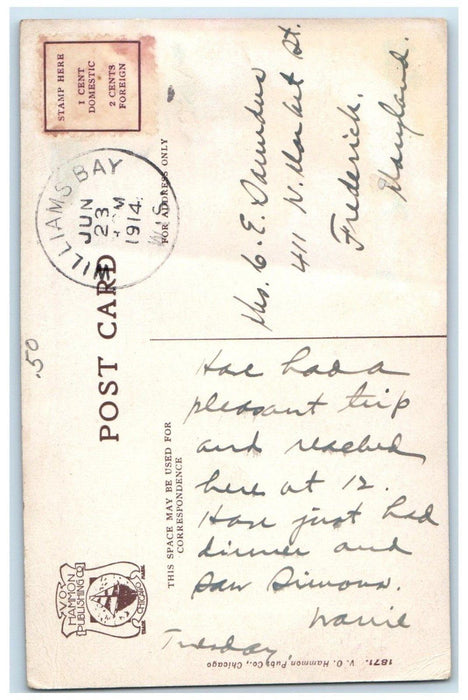 STAMP HERE
1 CENT
DOMESTIC
2 CENTS
FOREIGN
WILLIAMS BAY
WIS.
JUN
23
M
1914
POST CARD
.50
FOR ADDRESS ONLY
Mrs. C. E. Saunders
411 N. Market St.
Frederick.
Maryland.
THIS SPACE MAY BE USED FOR
CORRESPONDENCE
Have had a
pleasant trip
and reached
here at 12.
Have just had
dinner and
saw Simons.
Tuesday
V. O.
HAMMON
PUBLISHING CO.
CHICAGO
TRADE
MARK
1871. V. O. Hammon Pubs Co., Chicago